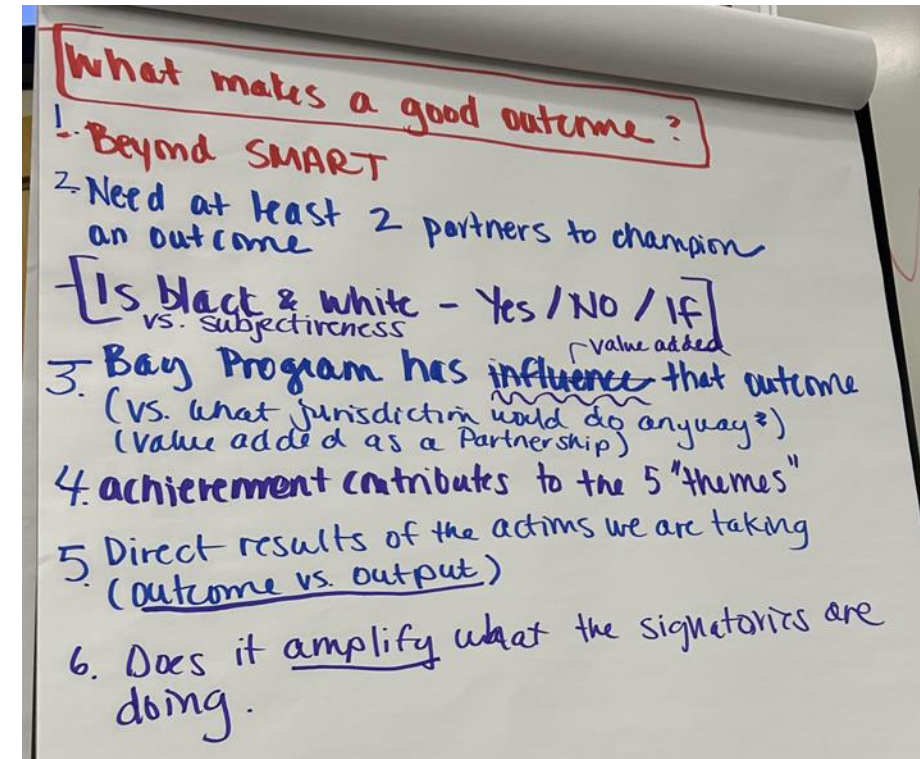 What makes a good outcome?
1. Beyond SMART
2. Need at least 2 partners to champion
an outcome
[Is black & white - Yes / NO / If]
vs. subjectiveness
value added
3. Bay Program has influence that outcome
(vs. what jurisdiction would do anyway?)
(value added as a Partnership)
4. achievement contributes to the 5 "themes"
5. Direct results of the actions we are taking
(outcome vs. output)
6. Does it amplify what the signatories are
doing.